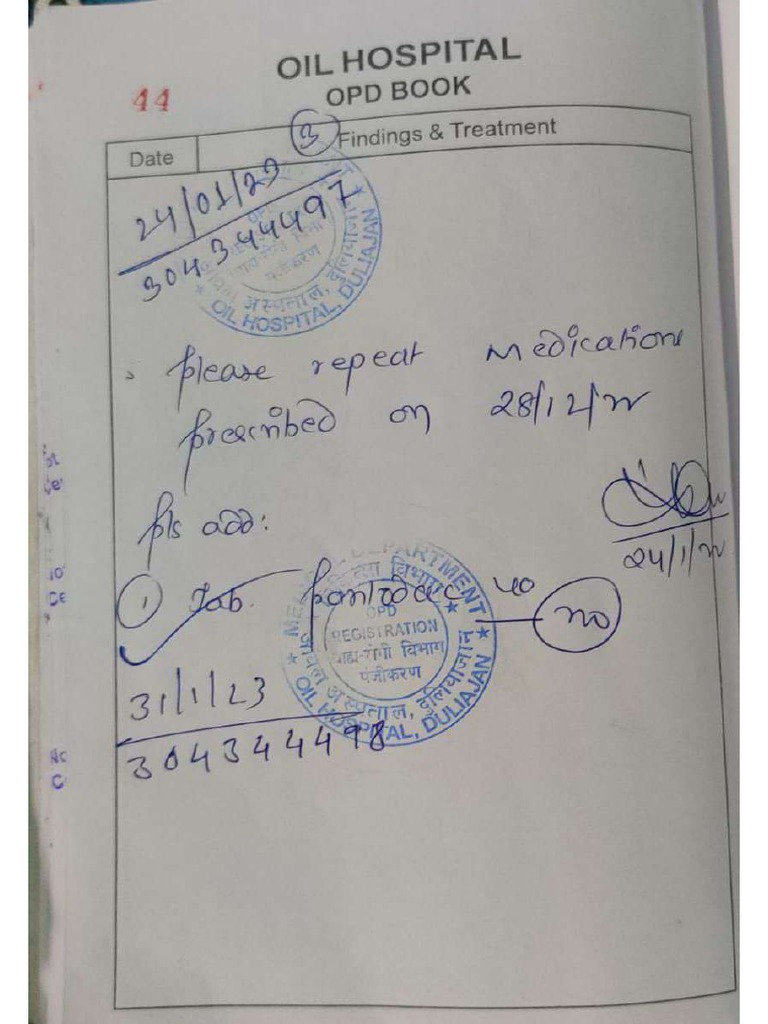 OIL HOSPITAL
OPD BOOK
44
Date
3 Findings & Treatment
24/01/23
304344497
REGISTRATION
पंजीकरण
अस्पताल, दुलियाजान
OIL HOSPITAL, DULIAJAN
please repeat medications
prescribed on 28/12/22
pls add:
24/1/22
1 Tab. Pantodac 40
no
DEPARTMENT
विभाग
OPD
REGISTRATION
बाह्य-रोगी विभाग
पंजीकरण
अस्पताल, दुलियाजान
OIL HOSPITAL, DULIAJAN
31/1/23
304344498